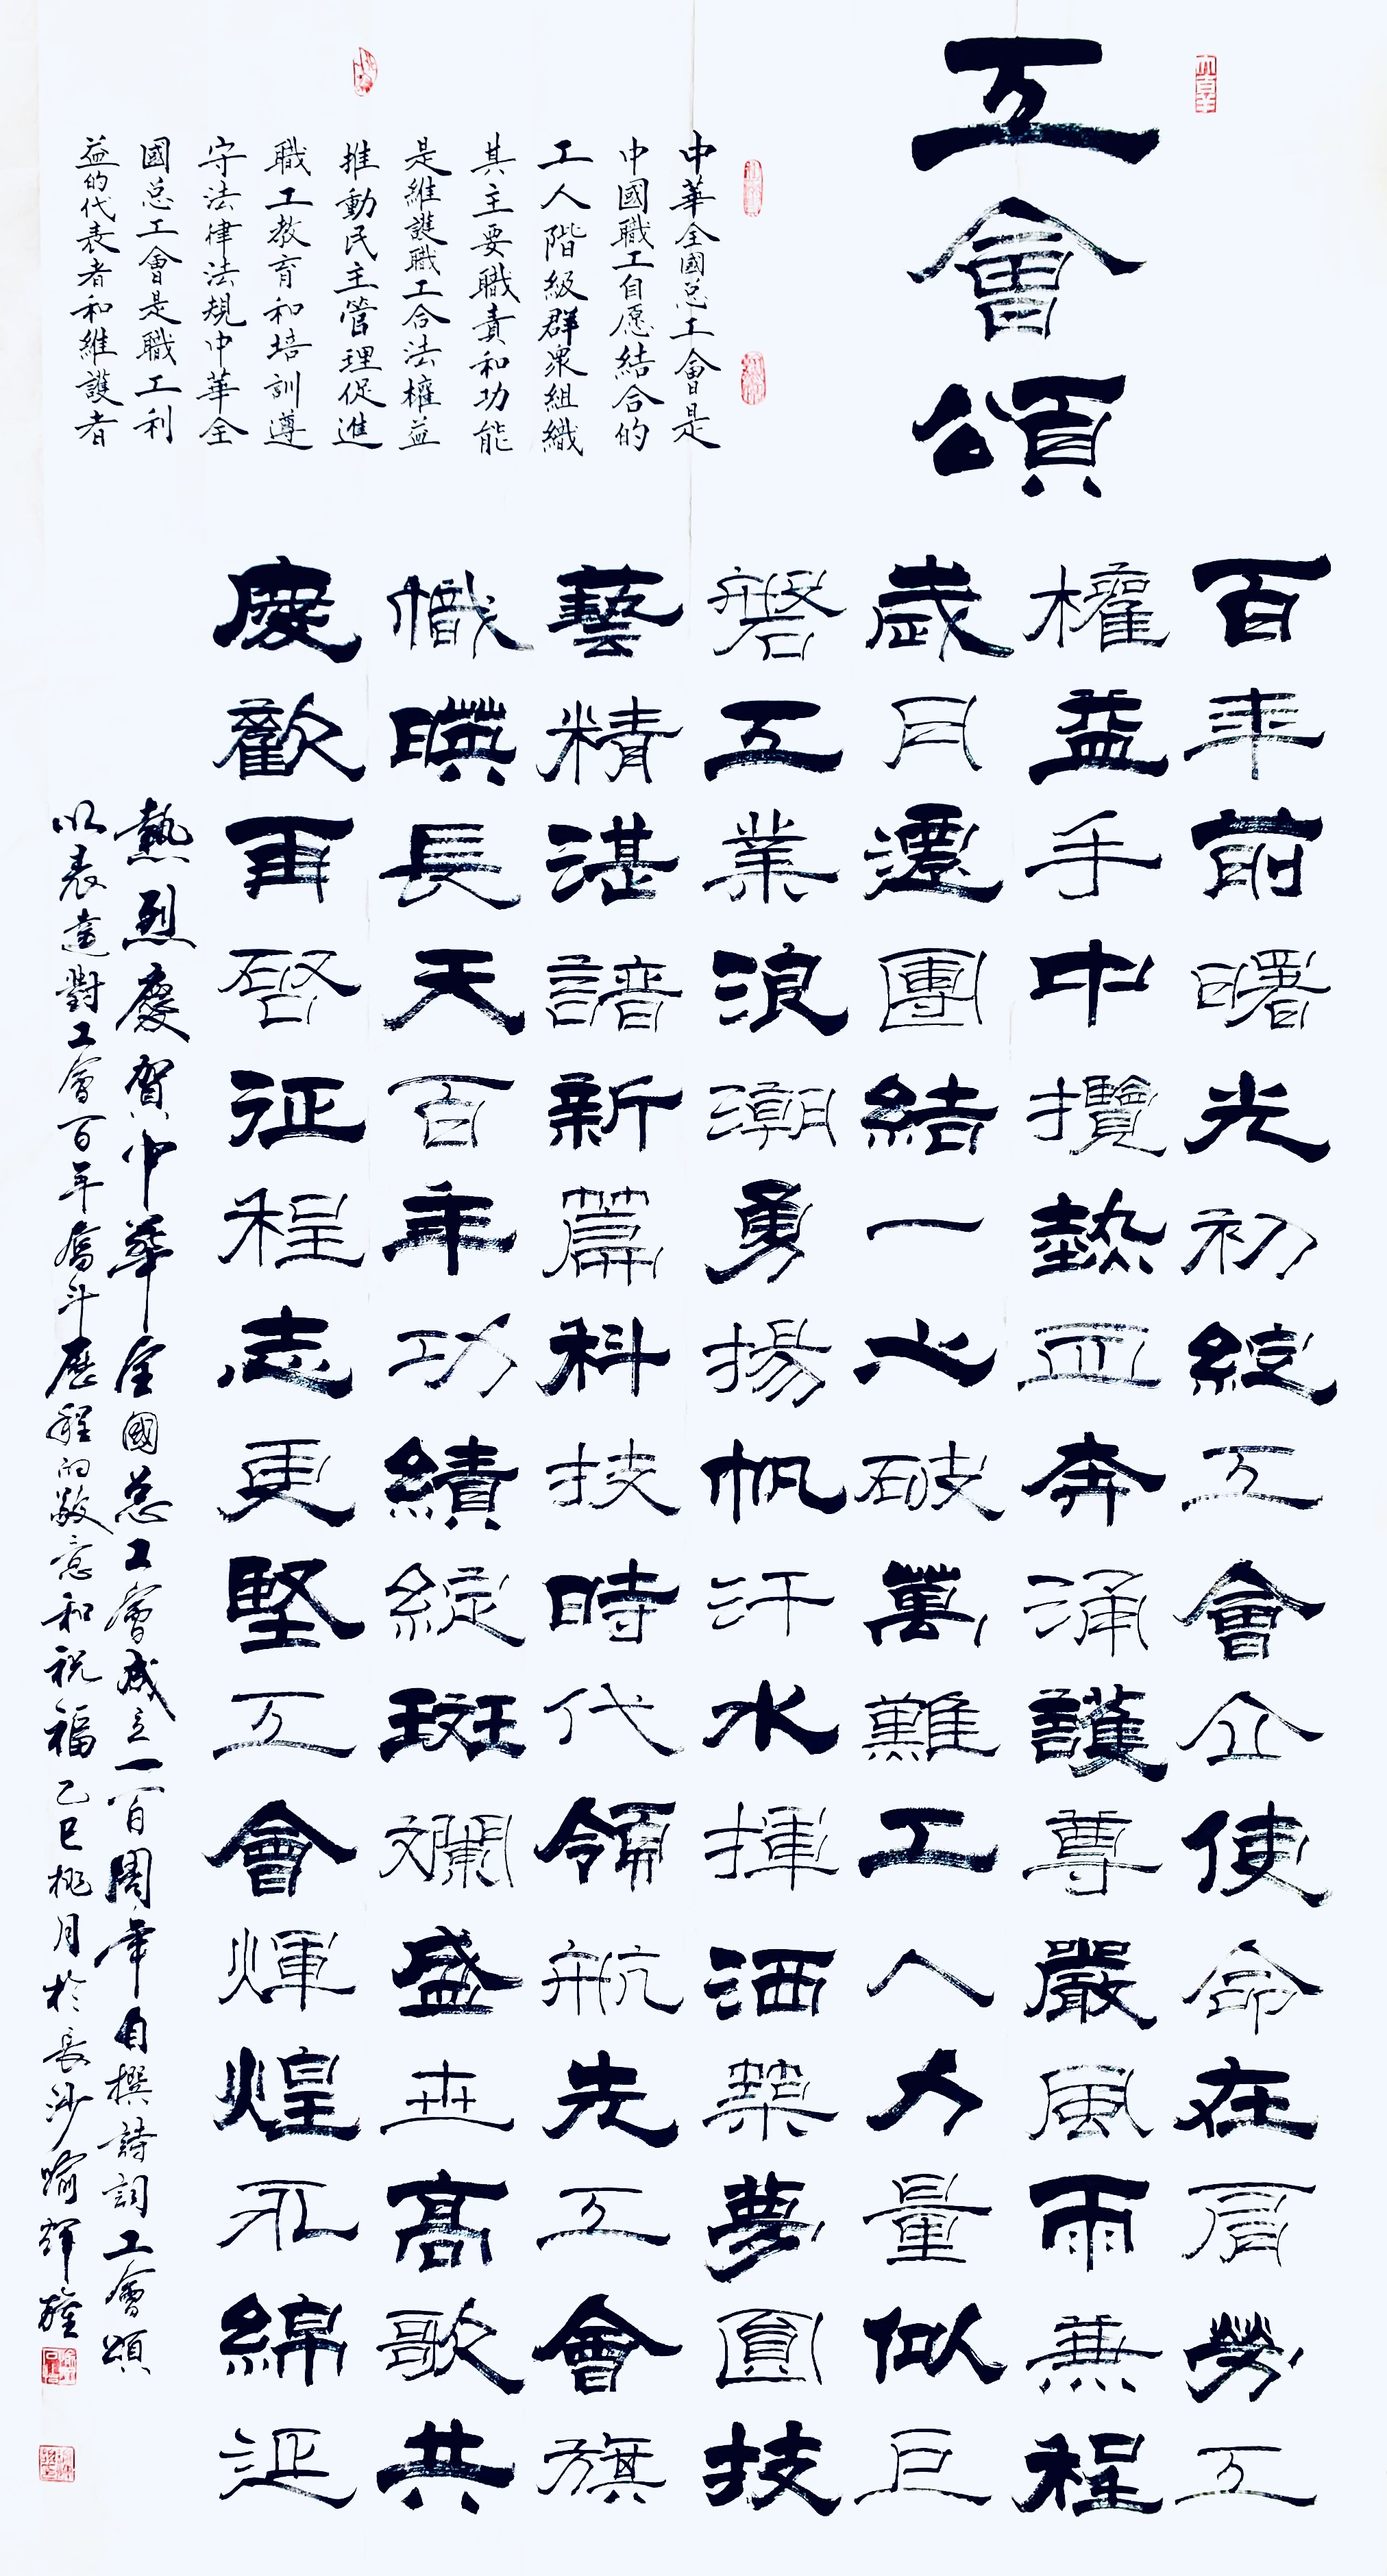 工會頌
中華全國总工會是
中國職工自愿結合的
工人階級群衆組織
其主要職責和功能
是維護職工合法權益
推動民主管理促進
職工教育和培訓遵
守法律法規中華全
國总工會是職工利
益的代表者和維護者
百年前曙光初綻工會企使命在肩勞工
權益手中攬熱血奔涌護尊嚴風雨兼程
歲月遷團結一心破萬難工人力量似巨
磐工業浪潮勇揚帆汗水揮洒築夢圓技
藝精湛譜新篇科技時代領航先工會旗
幟暎長天百年功績綻斑斕盛世高歌共
慶歡再啓征程志更堅工會煇煌永綿延
熱烈慶賀中華全國总工會成立一百周年自撰詩詞工會頌
以表達對工會百年奮斗歷程的敬意和祝福乙巳桃月於長沙喻輝